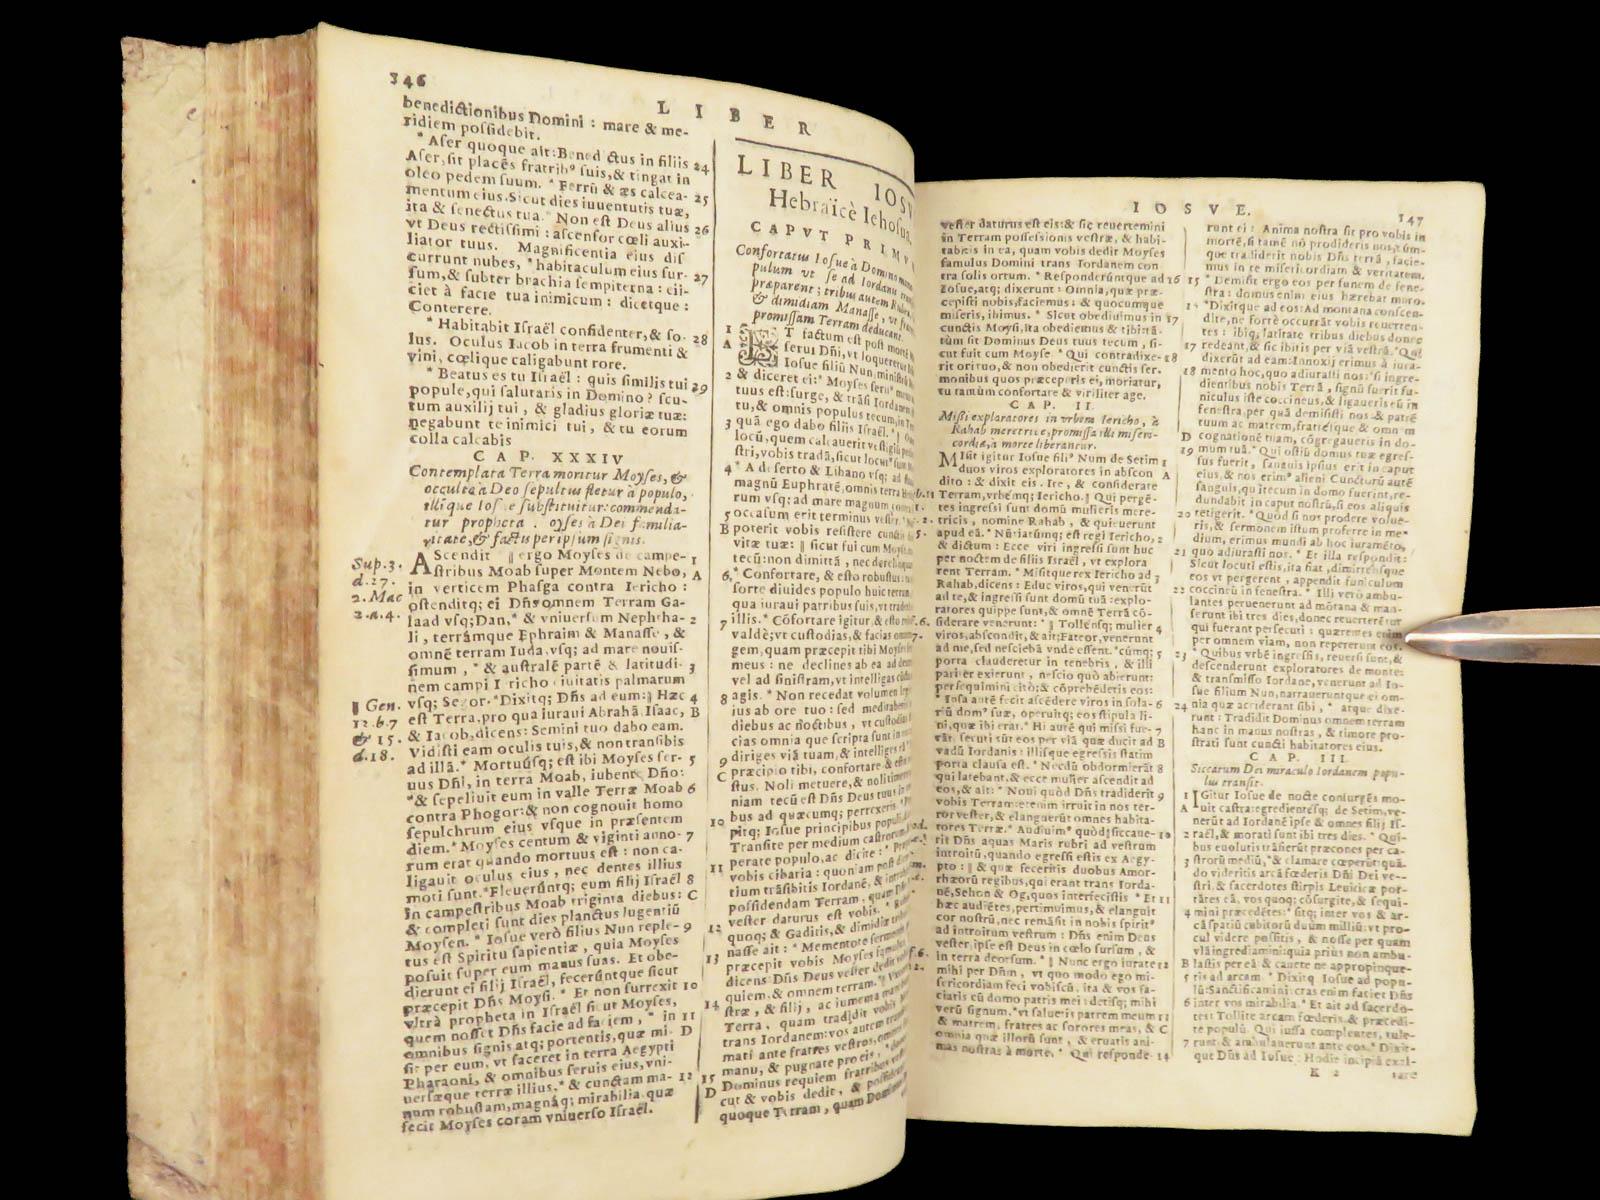 346
LIBER
benedictionibus Domini : mare & me-
ridiem possidebit.
* Aser quoque ait: Bened ctus in filiis 24
Aser, sit placēs fratrib⁹ suis, & tingat in
oleo pedem suum. * Ferrū & æs calcea- 25
mentum eius. Sicut dies iuuentutis tuæ,
ita & senectus tua. * Non est Deus alius 26
vt Deus rectissimi : ascensor cœli auxi-
liator tuus. Magnificentia eius dis
currunt nubes, * habitaculum eius sur- 27
sum, & subter brachia sempiterna : eii-
ciet à facie tua inimicum : dicetque :
Conterere.
* Habitabit Israël confidenter, & so- 28
lus. Oculus Iacob in terra frumenti &
vini, cœlique caligabunt rore.
* Beatus es tu Israël : quis similis tui 29
popule, qui saluaris in Domino ? scu-
tum auxilij tui, & gladius gloriæ tuæ:
negabunt te inimici tui, & tu eorum
colla calcabis
CAP. XXXIV
Contemplata Terra moritur Moyses, &
occultè à Deo sepultus fletur à populo,
illique Iosue substituitur: commenda-
tur propheta . oyses à Dei familia-
ritate, & factis per ipsum signis.
AScendit ‖ ergo Moyses de campe- 1
Sup. 3.
stribus Moab super Montem Nebo, A
d. 27.
in verticem Phasga contra Iericho :
2. Mac
ostenditq; ei Dñs omnem Terram Ga-
2. a. 4.
laad vsq; Dan, * & vniuersum Nephtha- 2
li, terrámque Ephraim & Manasse, &
omnē terram Iuda, vsq; ad mare nouis-
simum, * & australē partē & latitudi- 3
nem campi I richo ciuitatis palmarum
vsq; Segor. * Dixitq; Dñs ad eum: ‖ Hæc 4
‖ Gen.
est Terra, pro qua iuraui Abrahā, Isaac, B
12. b. 7
& Iacob, dicens: Semini tuo dabo eam.
& 15.
Vidisti eam oculis tuis, & non transibis
d. 18.
ad illā. * Mortuúsq; est ibi Moyses ser- 5
uus Dñi, in terra Moab, iubente Dño:
* & sepeliuit eum in valle Terræ Moab 6
contra Phogor: & non cognouit homo
sepulchrum eius vsque in præsentem
diem. * Moyses centum & viginti anno- 7
rum erat quando mortuus est : non ca-
ligauit oculus eius, nec dentes illius
moti sunt. * Fleuerūntq; eum filij Israël 8
in campestribus Moab triginta diebus: C
& completi sunt dies planctus lugentiū
Moysen. * Iosue verò filius Nun reple- 9
tus est Spiritu sapientiæ, quia Moyses
posuit super eum manus suas. Et obe-
dierunt ei filij Israël, fecerúntque sicut
præcepit Dñs Moysi. * Et non surrexit 10
vltrà propheta in Israël sicut Moyses,
quem nosset Dñs facie ad faciem, * in 11
omnibus signis atq; portentis, quæ mi- D
sit per eum, vt faceret in terra Aegypti
Pharaoni, & omnibus seruis eius, vni-
uersæque terræ illius. * & cunctam ma- 12
num robustam, magnáq; mirabilia quæ
fecit Moyses coram vniuerso Israël.
LIBER IOSV
Hebraïcè Iehosua,
CAPVT PRIMV
Confortatus Iosue à Domino
pulum vt se ad Iordanu
præparent; tribus autem Ruben,
& dimidiam Manasse, vt
promissam Terram deducant.
1 ET factum est post mortē
A serui Dñi, vt loqueretur
Iosue filiū Nun, ministrū
2 & diceret ei: * Moyses seru⁹
tuus est: surge, & trāsi Iordanem
tu, & omnis populus tecum, in
3 quā ego dabo filiis Israël. *
locū, quem calcauerit vestigiū
stri, vobis tradā, sicut locut⁹ sum
4 * A deserto & Libano vsq; ad
magnū Euphratē, omnis terra
rum vsq; ad mare magnum
5 occasum erit terminus vester.
B poterit vobis resistere cunctis
vitæ tuæ: ‖ sicut fui cum Moyse,
tecū: non dimittā, nec derelinquam
6 * Confortare, & esto robustus:
sorte diuides populo huic terram,
qua iuraui patribus suis, vt traderem
7 illis. * Cōfortare igitur, & esto
valdè: vt custodias, & facias
gem, quam præcepit tibi Moyses
meus : ne declines ab ea ad
vel ad sinistram, vt intelligas
8 agis. * Non recedat volumen
ius ab ore tuo : sed meditaberis
diebus ac noctibus, vt custodias
cias omnia quæ scripta sunt in
diriges viā tuam, & intelliges
9 præcipio tibi, confortare & esto
C stus. Noli metuere, & noli timere
niam tecū est Dñs Deus tuus in
bus ad quæcumq; perrexeris.
10 pitq; Iosue principibus populi
Transite per medium castrorum,
perate populo, ac dicite :
11 vobis cibaria : quoniam post
tium trāsibitis Iordanē, &
possidendam Terram, quam
vester daturus est vobis. *
12 quoq; & Gaditis, & dimidiæ
nasse ait : * Mementote sermonis
13 præcepit vobis Moyses famulus
dicens Dñs Deus vester dedit vobis
quiem, & omnem terram. *
14 stræ, & filij, ac iumenta
Terra, quam tradidit vobis
trans Iordanem: vos autem transite
mati ante fratres vestros,
manu, & pugnate pro eis,
15 Dominus requiem fratribus
D cut & vobis dedit, & possideant
quoque Terram, quam Dominus
IOSVE.
147
vester daturus est eis: & sic reuertemini
in Terram possessionis vestræ, & habi-
tabitis in ea, quam vobis dedit Moyses
famulus Domini trans Iordanem con
tra solis ortum. * Responderūntque ad 16
Iosue, atq; dixerunt : Omnia, quæ præ-
cepisti nobis, faciemus : & quocumque
miseris, ibimus. * Sicut obediuimus in 17
cunctis Moysi, ita obediemus & tibi: tā-
tùm sit Dominus Deus tuus tecum, si-
cut fuit cum Moyse. * Qui contradixe- 18
rit ori tuo, & non obedierit cunctis ser-
monibus quos præceperis ei, moriatur,
tu tamùm confortare & viriliter age.
CAP. II.
Missi exploratores in vrbem Iericho, à
Rahab meretrice, promissa illi miseri-
cordia, à morte liberantur.
MIsit igitur Iosue fili⁹ Num de Setim 1
duos viros exploratores in abscon A
dito : & dixit eis. Ire, & considerate
Terram, vrbémq; Iericho. ‖ Qui pergē-
tes ingressi sunt domū mulieris mere-
tricis, nomine Rahab, & quieuerunt
apud eā. * Nūtiatúmq; est regi Iericho, 2
& dictum : Ecce viri ingressi sunt huc
per noctem de filiis Israël, vt explora
rent Terram. * Misítque rex Iericho ad 3
Rahab, dicens : Educ viros, qui venerūt
ad te, & ingressi sunt domū tuā: explo-
ratores quippe sunt, & omnē Terrā cō-
siderare venerunt : ‖ Tollensq; mulier 4
viros, abscondit, & ait: Fateor, venerunt
ad me, sed nesciebā vnde essent. * cúmq; 5
porta clauderetur in tenebris, & illi
pariter exierunt, nescio quò abierunt:
persequimini citò; & cōprehēdetis eos:
* Ipsa autē fecit ascēdere viros in sola- 6
riū dom⁹ suæ, operuitq; eos stipula li-
ni, quæ ibi erat. * Hi autē qui missi fue- 7
rāt, secuti sūt eos per viā quæ ducit ad B
vadū Iordanis : illisque egressis statim
porta clausa est. * Necdū obdormierāt 8
qui latebant, & ecce mulier ascendit ad
eos, & ait: * Noui quòd Dñs tradiderit 9
vobis Terram: etenim irruit in nos ter-
ror vester, & elanguerūt omnes habita-
tores Terræ. * Audiuim⁹ quòd siccaue- 10
rit Dñs aquas Maris rubri ad vestrum
introitū, quando egressi estis ex Aegy-
pto : ‖ & quæ feceritis duobus Amor-
rhæorū regibus, qui erant trans Iorda-
nē, Sehon & Og, quos interfecistis * Et 11
hæc audiētes, pertimuimus, & elanguit
cor nostrū, nec remāsit in nobis spirit⁹
ad introitum vestrum : Dñs enim Deus
vester, ipse est Deus in cœlo sursum, &
in terra deorsum. * ‖ Nunc ergo iurate 12
mihi per Dñm, vt quo modo ego mi-
sericordiam feci vobiscū, ita & vos fa-
ciatis cū domo patris mei : detisq; mihi
verū signum. * vt saluetis patrem meum 13
& matrem, fratres ac sorores meas, & C
omnia quæ illorū sunt, & eruatis ani-
mas nostras à morte. * Qui responde- 14
runt ei : Anima nostra sit pro vobis in
mortē, si tamē nō prodideris nos, cùm-
que tradiderit nobis Dñs terrā, facie-
mus in te misericordiam & veritatem.
15 * Demisit ergo eos per funem de fene-
stra : domus enim eius hærebat muro.
16 * Dixitque ad eos: Ad montana conscen-
dite, ne fortè occurrāt vobis reuerten-
tes : ibiq; latitate tribus diebus donec
17 redeant, & sic ibitis per viā vestrā. * Qui
dixerūt ad eam: Innoxij erimus à iura-
18 mento hoc, quo adiurasti nos: * si ingre-
dientibus nobis Terrā, signū fuerit fu-
niculus iste coccineus, & ligaueris eū in
fenestra, per quā demisisti nos & patrē
tuum ac matrem, fratrésque & omnem
D cognationē tuam, cōgregaueris in do-
19 mum tuā. * Qui ostiū domus tuæ egres-
sus fuerit, sanguis ipsius erit in caput
eius, & nos erim⁹ alieni Cunctorū autē
sanguis, qui tecum in domo fuerint, re-
dundabit in caput nostrū, si eos aliquis
20 tetigerit. * Quòd si nos prodere volue-
ris, & sermonem istum proferre in me-
dium, erimus mundi ab hoc iuramēto,
21 quo adiurasti nos. * Et illa respōdit:
Sicut locuti estis, ita fiat, dimittēnsque
eos vt pergerent, appendit funiculum
22 coccineū in fenestra. * Illi verò ambu-
lantes peruenerunt ad mōtana & man-
serunt ibi tres dies, donec reuerterētur
qui fuerant persecuti : quærentes enim
per omnem viam, non repererunt eos.
23 * Quibus vrbē ingressis, reuersi sunt, &
descenderunt exploratores de monte:
& transmisso Iordane, venerunt ad Io-
sue filium Nun, narraueruntque ei om-
24 nia quæ acciderant sibi, * atque dixe-
runt : Tradidit Dominus omnem terram
hanc in manus nostras, & timore pro-
strati sunt cuncti habitatores eius.
CAP. III.
Siccatum Dei miraculo Iordanem popu-
lus transit.
1 IGitur Iosue de nocte consurgēs mo-
A uit castra: egredientésq; de Setim, ve-
nerūt ad Iordanē ipse & omnes filij Is-
2 raël, & morati sunt ibi tres dies. * Qui-
bus euolutis trāsierūt præcones per ca-
3 strorū mediū, * & clamare cœperūt: quā-
do videritis arcā fœderis Dñi Dei ve-
stri, & sacerdotes stirpis Leuiticæ por-
tātes eā, vos quoq; cōsurgite, & sequi-
4 mini præcedētes: * sitq; inter vos & ar-
cā spatiū cubitorū duùm milliū: vt pro-
cul videre possitis, & nosse per quam
viā ingrediamini: quia prius non ambu-
B lastis per eā & cauete ne appropinque-
5 tis ad arcam. * Dixitq; Iosue ad popu-
lū: Sanctificamini: cras enim faciet Dñs
6 inter vos mirabilia. * Et ait ad sacerdo-
tes: Tollite arcam fœderis, & præcedi-
te populū. Qui iussa complentes, tule-
7 runt, & ambulauerunt ante eos. * Dixit-
que Dñs ad Iosue : Hodie incipiā exal-
K 2 tare